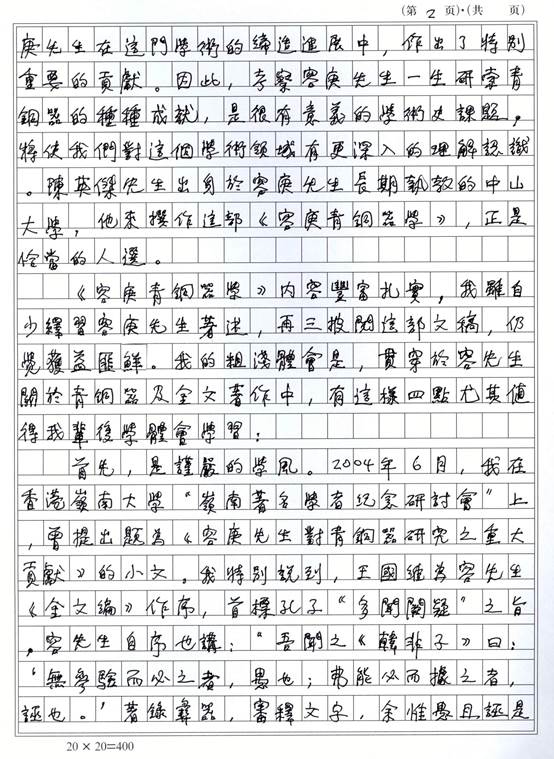 （第 2 页）·（共　　页）
庚先生在這門學術的締造進展中，作出了特別
重要的貢獻。因此，考察容庚先生一生研索青
銅器的種種成就，是很有意義的學術史課題，
將使我們對這個學術領域有更深入的理解認識
。陳英傑先生出身於容庚先生長期執教的中山
大學，他來撰作這部《容庚青銅器學》，正是
恰當的人選。
《容庚青銅器學》内容豐富扎實，我雖自
少繹習容庚先生著述，再三披閱這部文稿，仍
覺獲益匪鮮。我的粗淺體會是，貫穿於容先生
關於青銅器及金文著作中，有這樣四點尤其值
得我輩後學體會學習：
首先，是謹嚴的學風。2004年6月，我在
香港嶺南大學“嶺南著名學者纪念研討會”上
，曾提出題為《容庚先生對青銅器研究之重大
貢獻》的小文。我特別説到，王國維為容先生
《金文編》作序，首標孔子“多聞闕疑”之旨
，容先生自序也講：“吾聞之《韓非子》曰：
‘無參驗而必之者，愚也；弗能必而據之者，
誣也。’著錄彝器，審釋文字，余惟愚且誣是
20 × 20=400